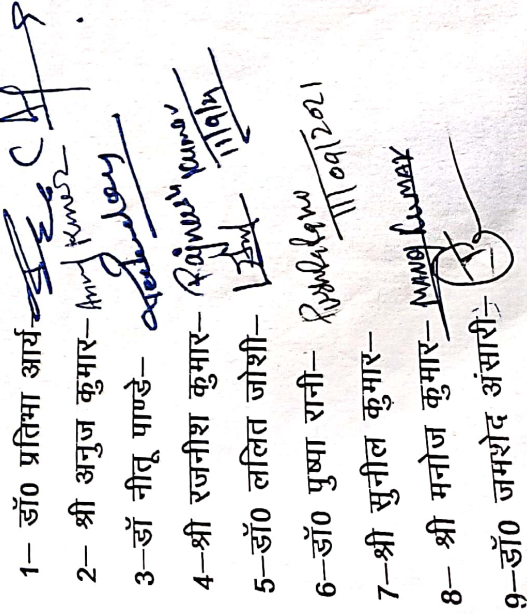 1– डॉ0 प्रतिमा आर्य–
2– श्री अनुज कुमार– Anuj Kumar
3–डॉ नीतू पाण्डे–
4–श्री रजनीश कुमार– Rajneesh Kumar 11/9/21
5–डॉ0 ललित जोशी–
6–डॉ0 पुष्पा रानी– Pushpa Rano 11/09/2021
7–श्री सुनील कुमार–
8– श्री मनोज कुमार– MANOJ KUMAR
9–डॉ0 जमशेद अंसारी–